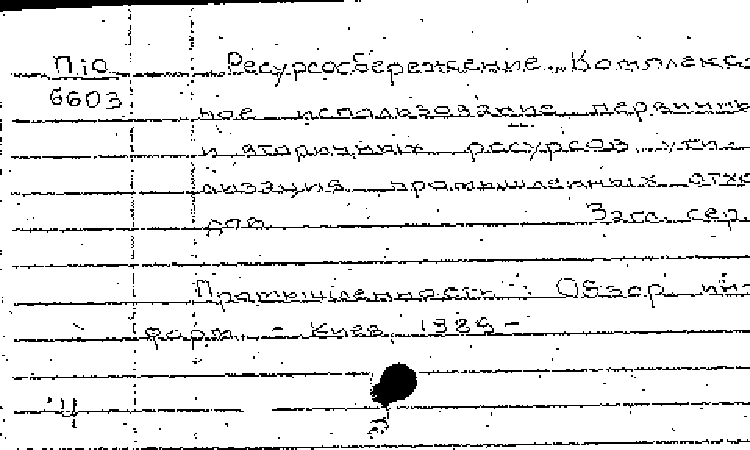 П10
6603
Ресурсосбережение. Комплекс
ное использование первичны
и вторичных ресурсов ути-
лизация промышленных отхо
дов Загл. сер.
Промышленность: Обзор. ин-
форм. - Киев, 1989 -
Ч